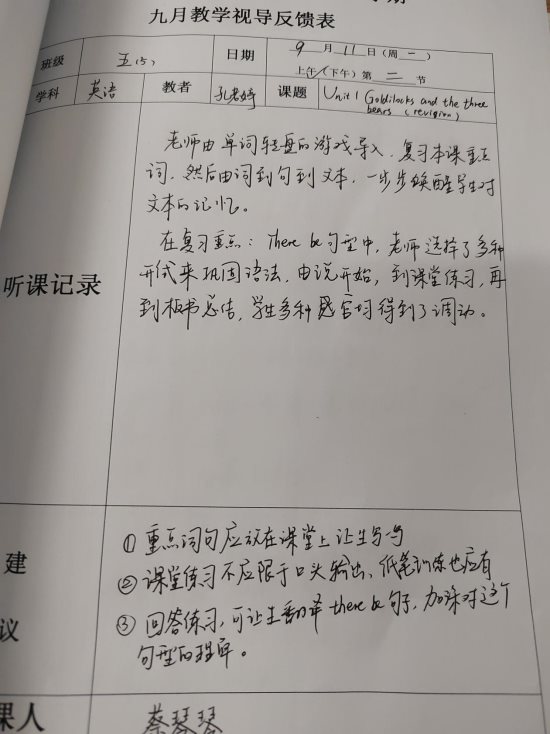 九月教学视导反馈表
班级 五(5) 日期 9月11日(周一)
上午(下午)第二节
学科 英语 教者 课题 Unit 1 Goldilocks and the three
bears (revision)
听课记录
老师由单词轻盘的游戏导入,复习本课重点
词,然后由词到句到文本,一步步唤醒学生对
文本的记忆。
在复习重点:There be句型中,老师选择了多种
形式来巩固语法,由说开始,到课堂练习,再
到板书总结,学生多种感官均得到了调动。
建
议
①重点词句应放在课堂上让生写写
②课堂练习不应限于口头输出、纸笔训练也应有
③回答练习,可让生翻译there be句子,加深对这个
句型的理解。
课人 蔡琴琴